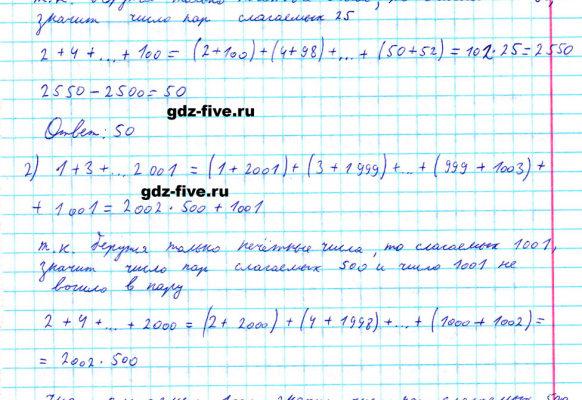 значит число пар слагаемых 25
2 + 4 + ... + 100 = (2+100) + (4+98) + ... + (50+52) = 102·25 = 2550
2550 - 2500 = 50
gdz-five.ru
Ответ: 50
2) 1 + 3 + ... 2001 = (1 + 2001) + (3 + 1999) + ... + (999 + 1003) +
gdz-five.ru
+ 1001 = 2002 · 500 + 1001
т.к. берутся только нечётные числа, то слагаемых 1001,
значит число пар слагаемых 500 и число 1001 не
вошло в пару
2 + 4 + ... + 2000 = (2 + 2000) + (4 + 1998) + ... + (1000 + 1002) =
= 2002 · 500